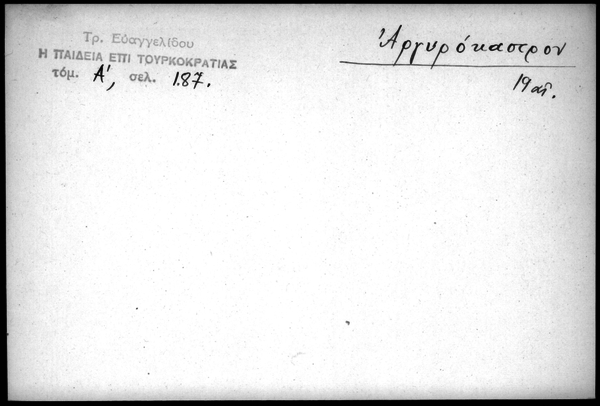 Τρ. Εὐαγγελίδου
Η ΠΑΙΔΕΙΑ ΕΠΙ ΤΟΥΡΚΟΚΡΑΤΙΑΣ
τόμ. Α', σελ. 187.
Ἀργυρόκαστρον
19 αἰ.